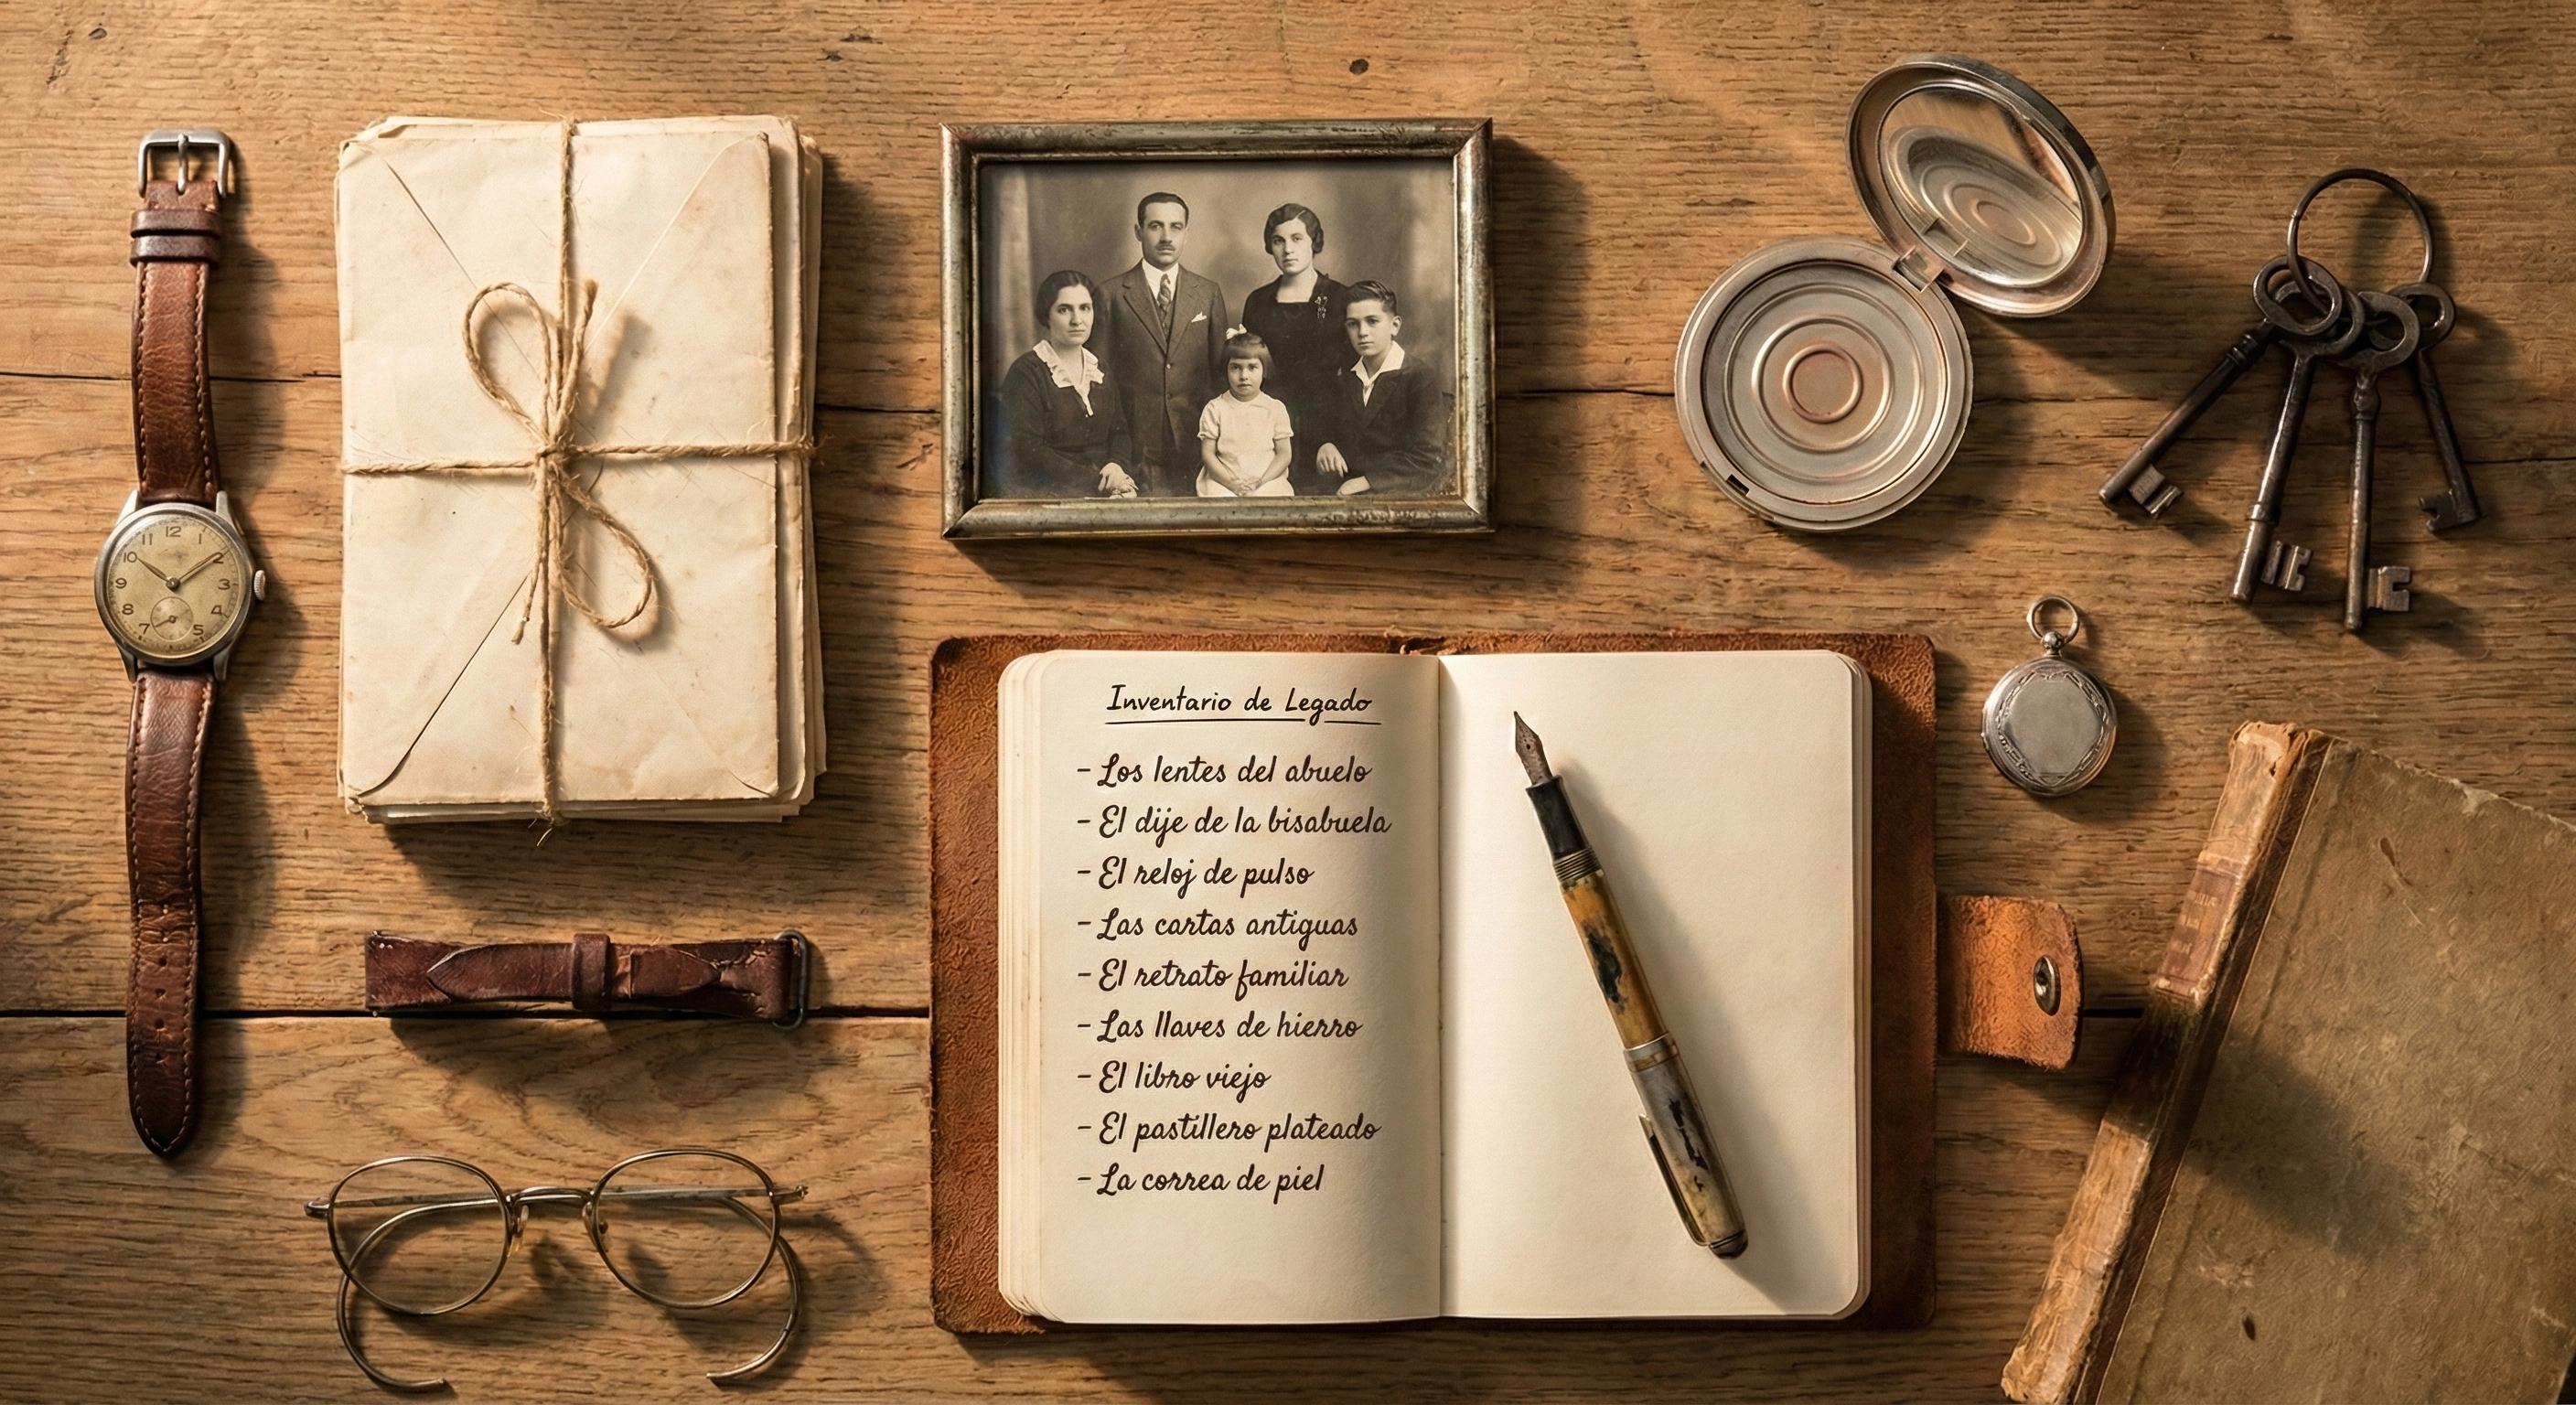 Inventario de Legado
- Los lentes del abuelo
- El dije de la bisabuela
- El reloj de pulso
- Las cartas antiguas
- El retrato familiar
- Las llaves de hierro
- El libro viejo
- El pastillero plateado
- La correa de piel
12
1
2
3
4
5
7
8
9
10
11